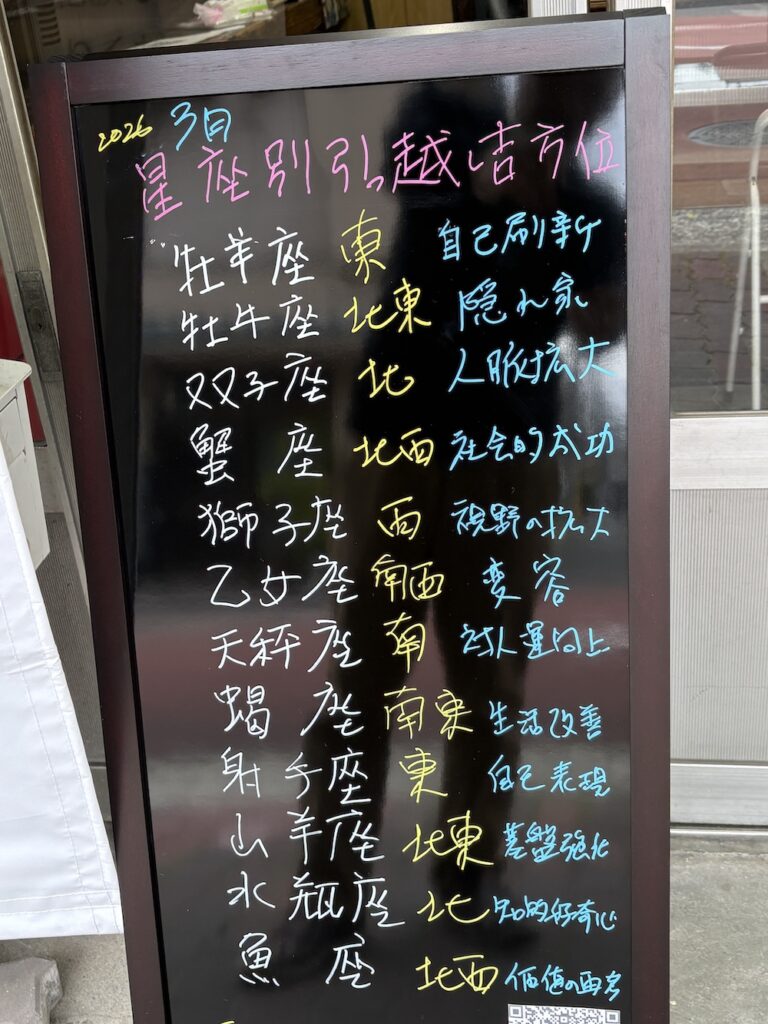 2026 3月
星座別引っ越し吉方位
牡羊座 東 自己刷新
牡牛座 北東 隠れ家
双子座 北 人脈拡大
蟹座 北西 社会的成功
獅子座 西 視野の拡大
乙女座 南西 変容
天秤座 南 対人運向上
蝎座 南東 生活改善
射手座 東 自己表現
山羊座 北東 基盤強化
水瓶座 北 知的好奇心
魚座 北西 価値の